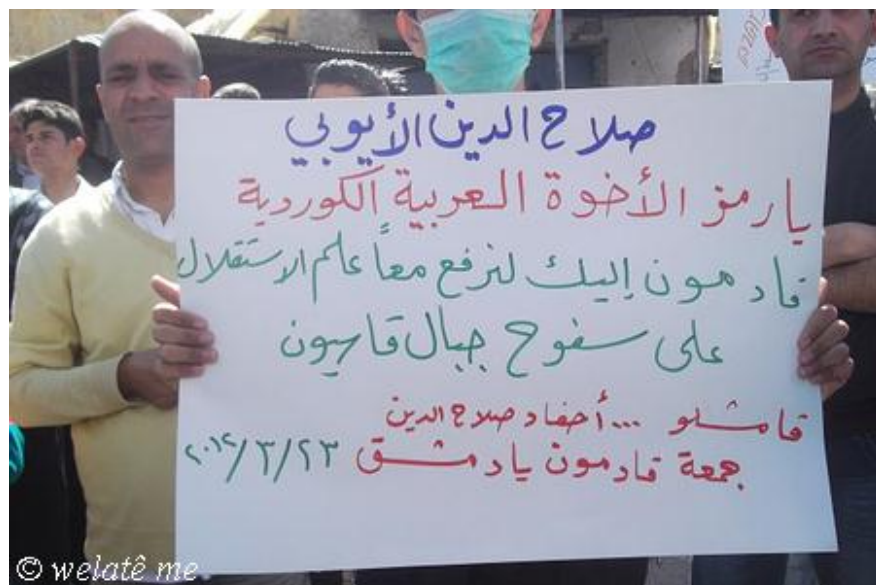 صلاح الدين الأيوبي
يا رمز الأخوة العربية الكوردية
قادمون إليك لنرفع معاً علم الاستقلال
على سفوح جبال قاسيون
قامشلو ... أحفاد صلاح الدين
جمعة قادمون يا دمشق ٢٠١٢/٣/٢٣
© welatê me